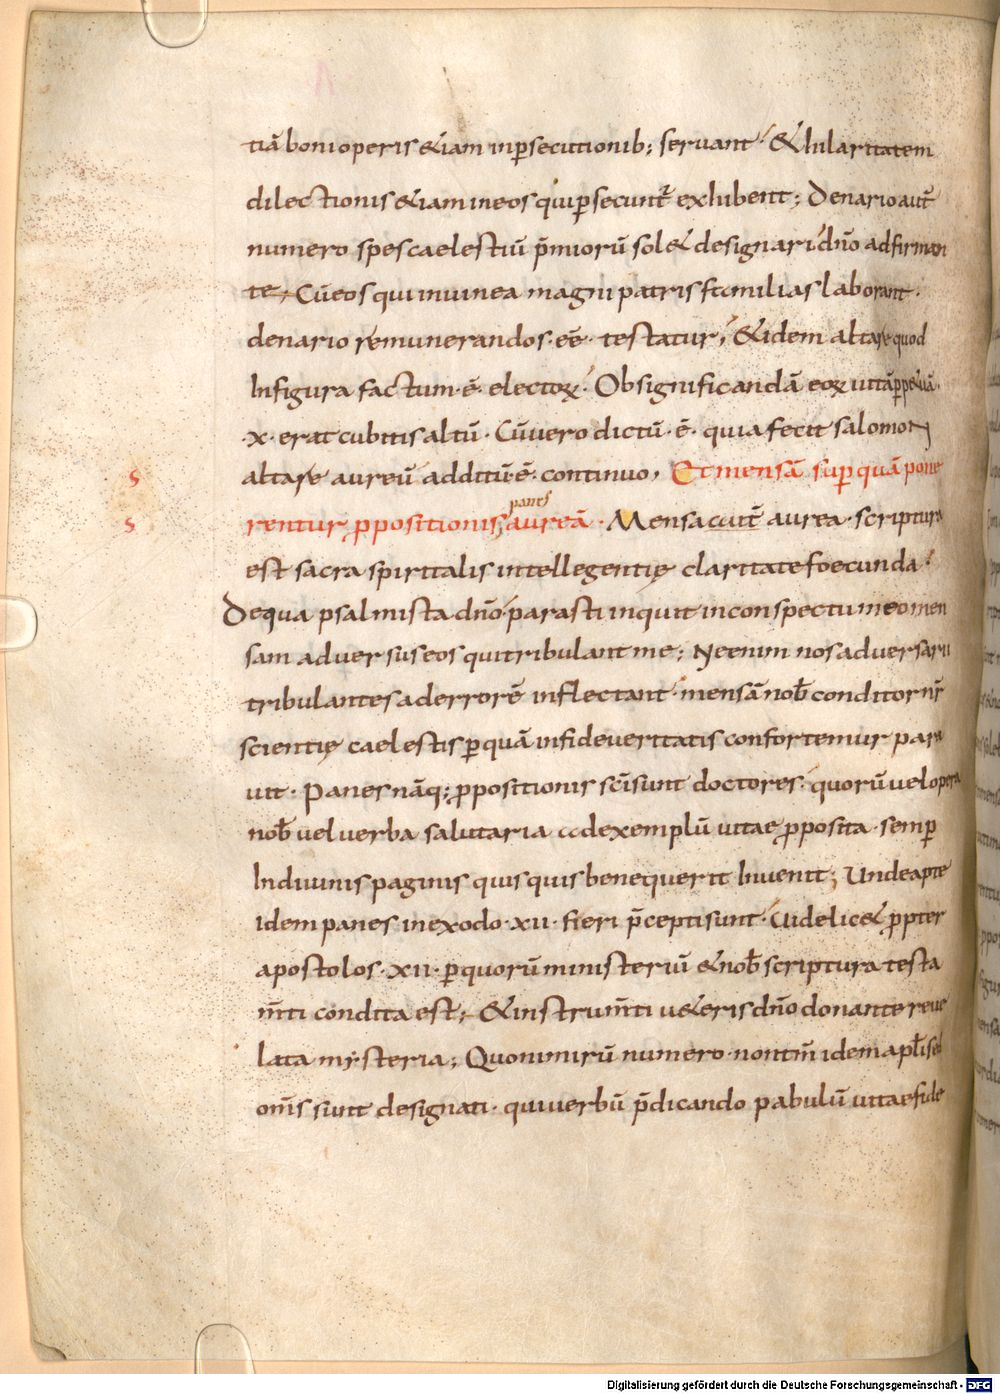 tiā boni operis &iam inp̱secutionib; servant· & hilaritatem
dilectionis &iam ineos qui p̱secunt᷑ exhibent; Denario aut̄
numero spes caelestiū p̄miorū sol& designari dn̄o adfirman
te; Cū eos qui in vinea magni patris familias laborant·
denario remunerandos·eē· testatur; &idem altare quod
In figura factum·ē· electoꝝ· Ob significandā eoꝝ vitā ꝑpetuā·
·x· erat cubitis altū· Cū vero dictū·ē· quia fecit salomon
altare aureū additū·ē· continuo, Et mensā sup̱ quā pone
rentur ꝓpositionis; aureā· Mensa aut̄ aurea· scriptura
panes
est sacra spiritalis intellegentię claritate foecunda·
De qua psalmista dn̄o· parasti inquit in conspectu meo men
sam adversus eos qui tribulant me; Ne enim nos adversarii
tribulantes ad errorē inflectant· mensā nob̄ conditor nr̄
scientię caelestis p̱ quā in fide veritatis confortemur para
vit· Panes nāq; ꝓpositionis sc̄i sunt doctores· quorū vel opera
nob̄ vel verba salutaria ad exemplū vitae ꝓposita· semp̱
In divinis paginis quisquis bene querit Invenit; Unde apte
Idem panes in exodo·xii· fieri p̄cepti sunt· Videlic& ꝓpter
apostolos·xii· p̱ quorū ministeriū & nob̄ scriptura testa
m̄ti condita est; & instrum̄ti v&eris dn̄o donante reve
lata mysteria; Quo nimirū numero· non tm̄ idem apl̄i sed
om̄s sunt designati· qui verbū p̄dicando pabulū vitae fide
S
S
Digitalisierung gefördert durch die Deutsche Forschungsgemeinschaft - DFG